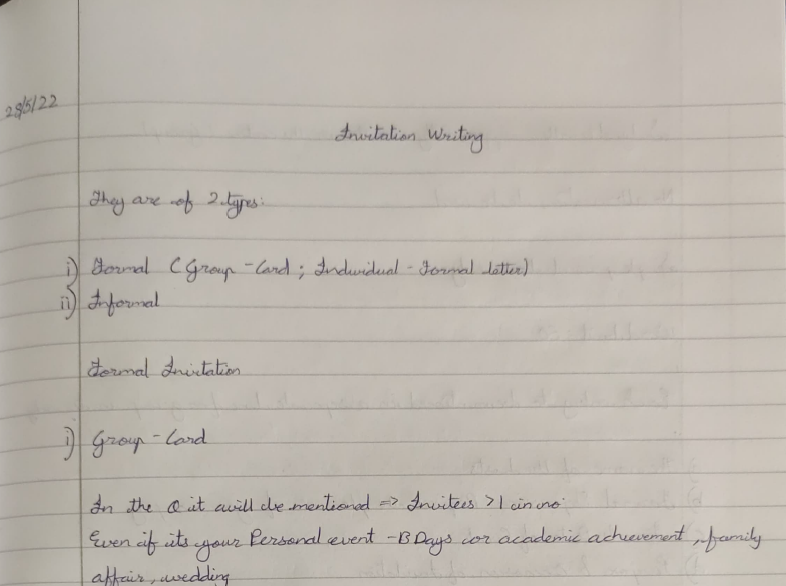 28/5/22
Invitation Writing
They are of 2 types:
i) Formal (Group - Card ; Individual - Formal letter)
ii) Informal
Formal Invitation
i) Group - Card
In the Q it will be mentioned => Invitees >1 in no.
Even if its your Personal event - B Days or academic achievement, family
affair, wedding